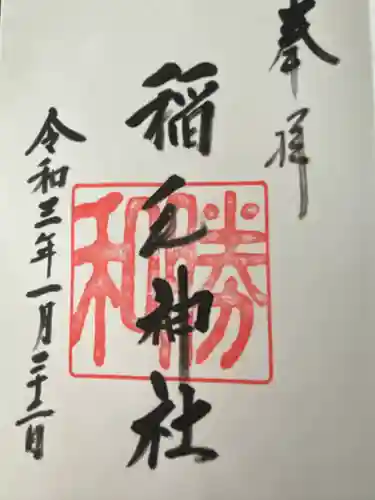 奉拝
稲毛神社
勝和
令和三年一月二十一日